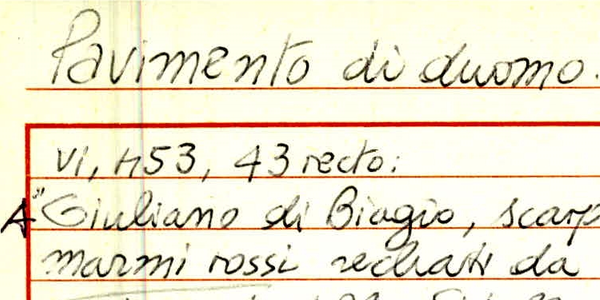 Pavimento di duomo.
VI, 453, 43 recto:
A" Giuliano di Biagio, scarp
marmi rossi recati da